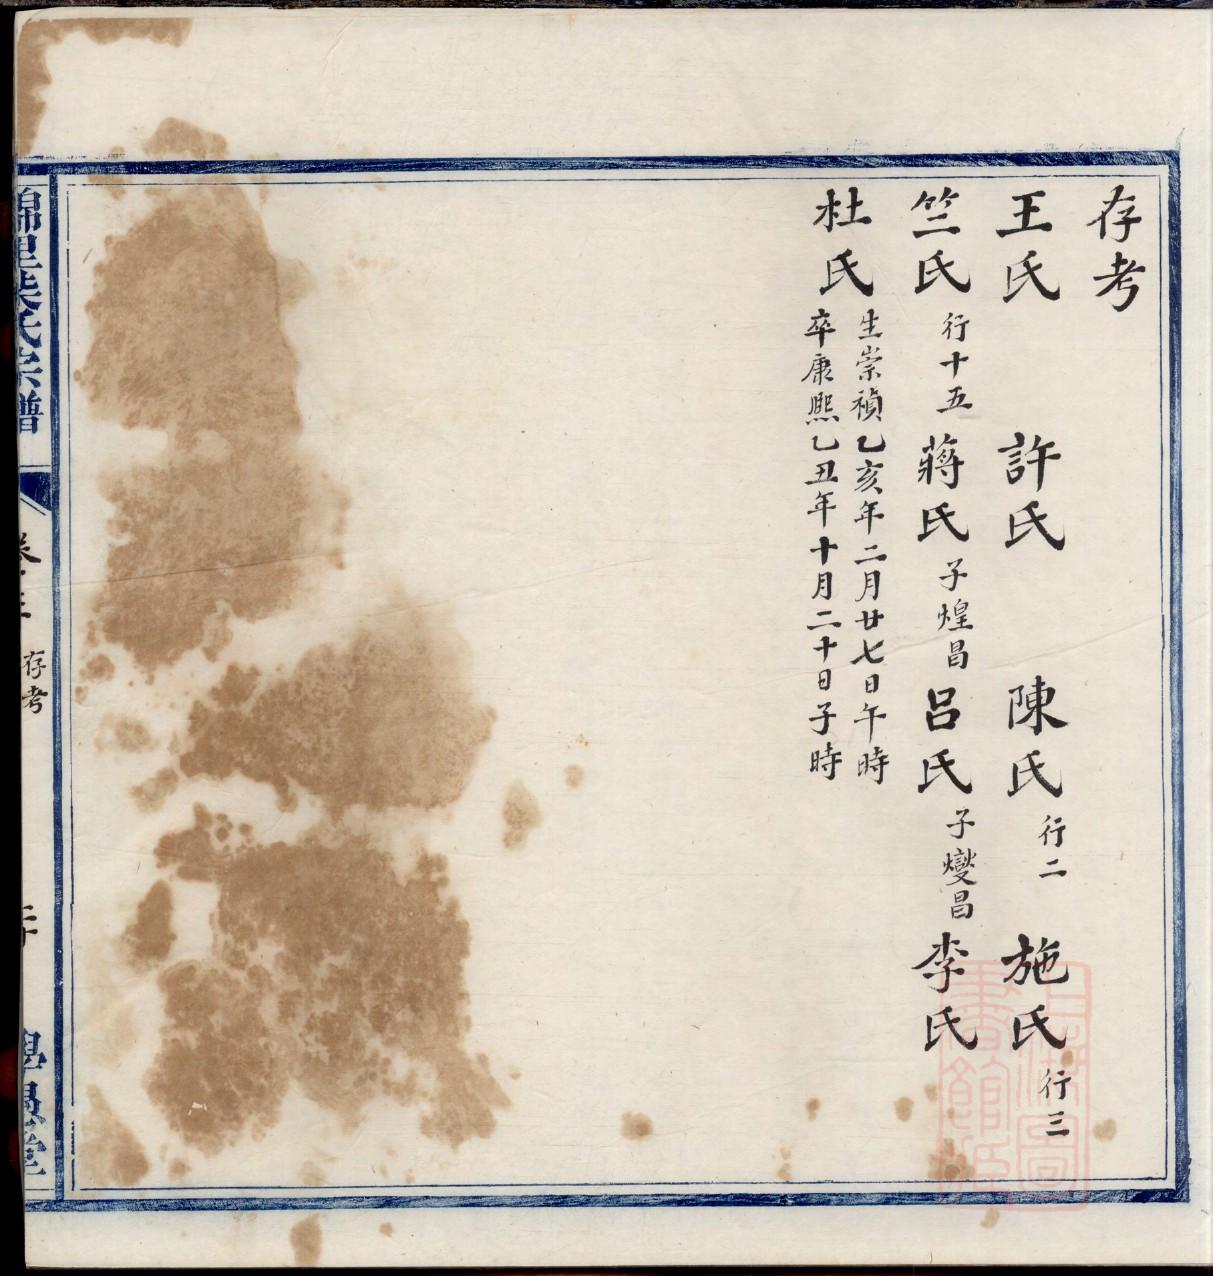 存考
王氏 許氏 陳氏 行二 施氏 行三
竺氏 行十五 蔣氏 子煌昌 呂氏 子燮昌 李氏
杜氏 生崇禎乙亥年二月廿七日午時
卒康熙乙丑年十月二十日子時
氏宗譜
存考